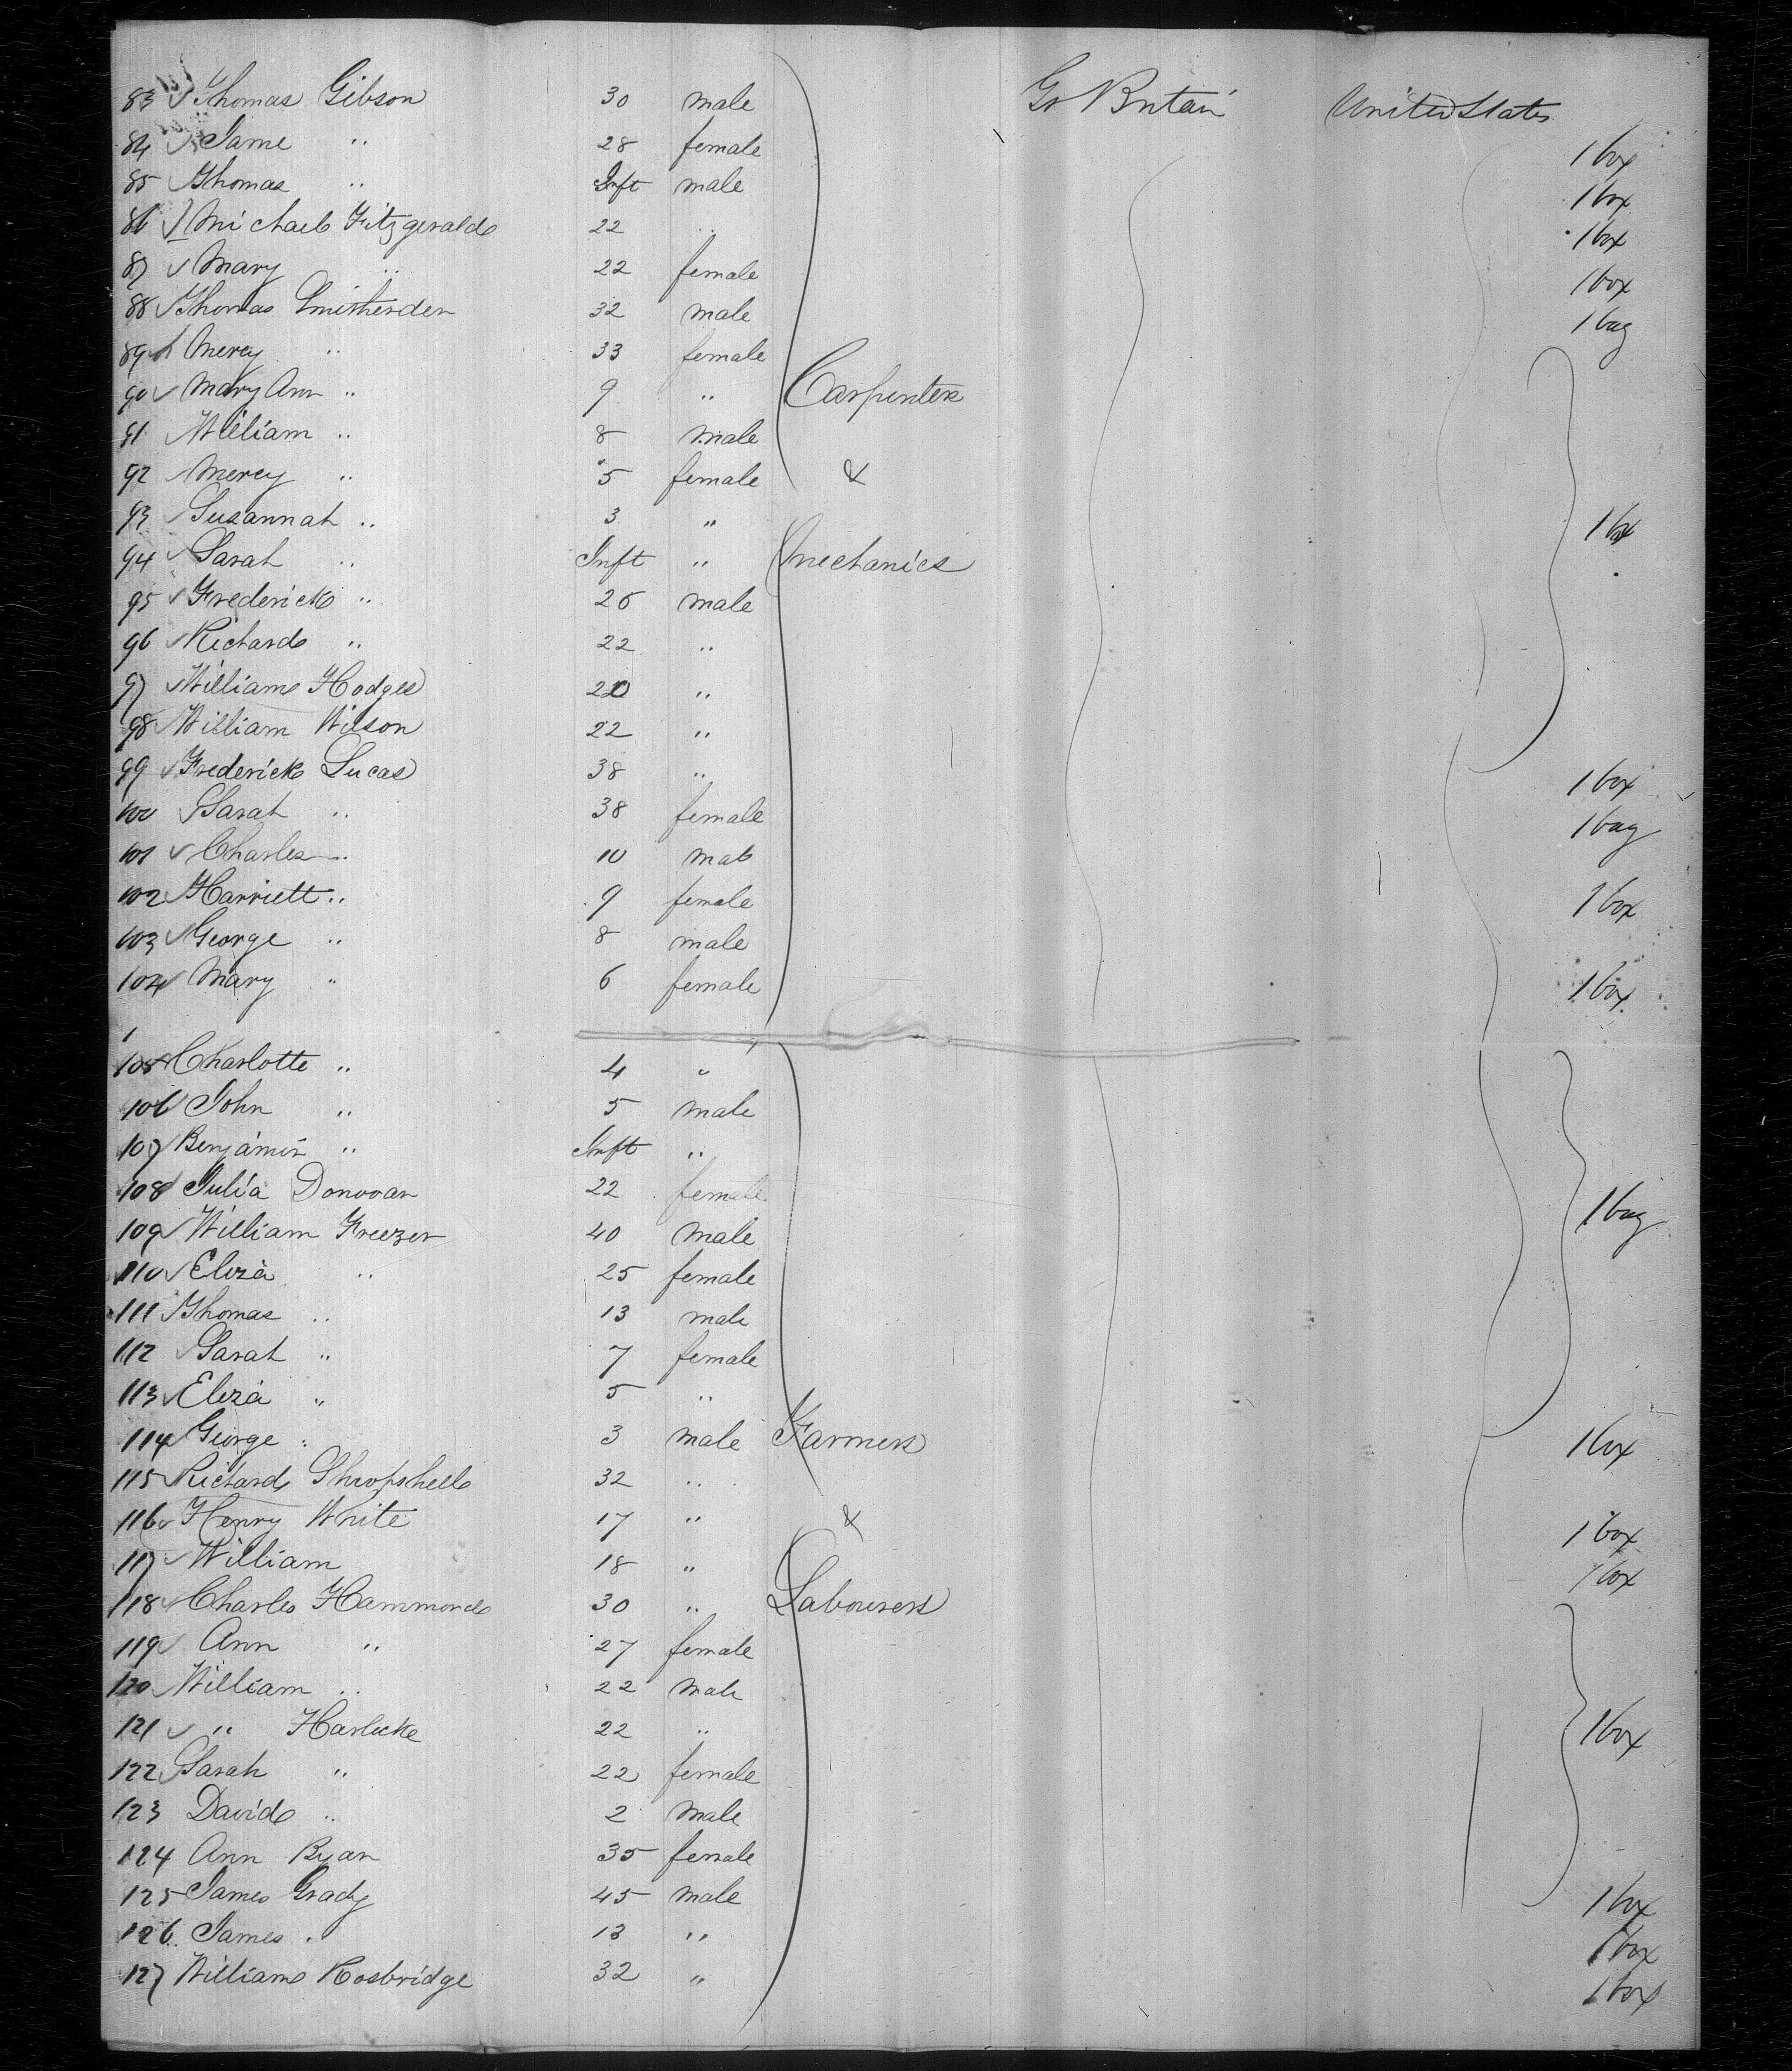 83 Thomas Gibson 30 male Gt Britain United States
84 Jame " 28 female 1 box
85 Thomas " Inft male 1 box
86 Michael Fitzgerald 22 " 1 box
87 Mary " 22 female 1 box
88 Thomas Smitherden 32 male 1 bag
89 Mercy " 33 female
90 Mary Ann " 9 " Carpenters
91 William " 8 male
92 Mercy " 5 female &
93 Susannah " 3 " 1 box
94 Sarah " Inft " Mechanics
95 Frederick " 26 male
96 Richard " 22 "
97 William Hodges 20 "
98 William Wilson 22 "
99 Frederick Lucas 38 " 1 box
100 Sarah " 38 female 1 bag
101 Charles " 10 male
102 Harriett " 9 female 1 box
103 George " 8 male
104 Mary " 6 female 1 box
105 Charlotte " 4 "
106 John " 5 male
107 Benjamin " Inft "
108 Julia Donovan 22 female 1 bag
109 William Freezer 40 male
110 Eliza " 25 female
111 Thomas " 13 male
112 Sarah " 7 female
113 Eliza " 5 "
114 George " 3 male Farmers 1 box
115 Richard 32 "
116 Henry White 17 " & 1 box
117 William 18 " 1 box
118 Charles Hammond 30 " Labourers
119 Ann " 27 female
120 William " 22 male
121 " Harlicke 22 " 1 box
122 Sarah " 22 female
123 David " 2 male
124 Ann Ryan 35 female
125 James Grady 45 male 1 box
126 James " 13 " 1 box
127 William Rosbridge 32 " 1 box